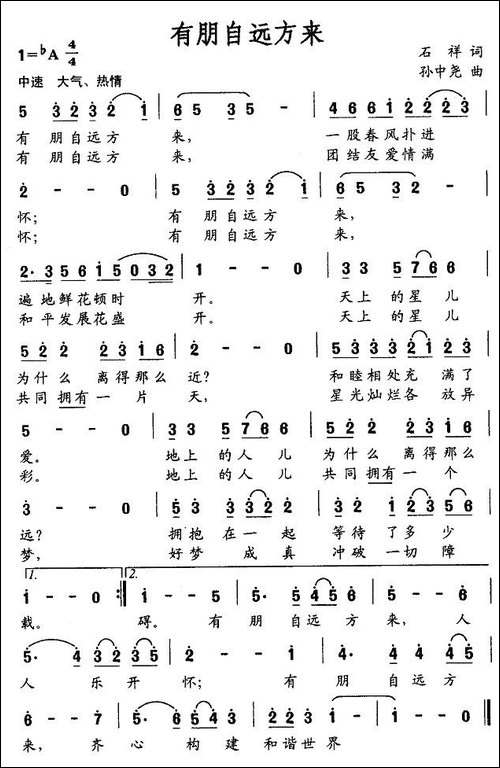 有朋自远方来
1=♭A 4/4
石 祥 词
孙中尧 曲
中速 大气、热情
5 3 2 3 2 1 | 6 5 3 5 | 4 6 6 1 2 2 2 3
有 朋自远方 来, 一股春风扑进
有 朋自远方 来, 团结友爱情满
2 - - 0 | 5 3 2 3 2 1 | 6 5 3 2 -
怀; 有 朋自远方 来,
怀; 有 朋自远方 来,
2· 3 5 6 1 5 0 3 2 | 1 - - 0 | 3 3 5 7 6 6
遍地鲜花顿时 开。 天上 的星儿
和平发展花盛 开。 天上 的星儿
5 2 2 2 3 1 6 | 2 - - 0 | 5 3 3 3 2 1 2 3
为什么 离得那么 近? 和睦相处充 满了
共同拥有一 片 天, 星光灿烂各 放异
5 - - 0 | 3 3 5 7 6 6 | 5 2 2 2 3 1 6
爱。 地上 的人儿 为什么 离得那么
彩。 地上 的人儿 共同拥有一 个
3 - - 0 | 5 3 3 3 2 2 | 3 2 1 2 3 5 6
远? 拥抱在一起 等待了多少
梦, 好梦 成真 冲破一切障
1. 2.
1 - - 0 :‖ 1 - - 5 | 5· 5 4 5 6 | 5 - - 5
载。 碍。 有 朋 自远 方 来, 人
5· 4 3 2 3 5 | 2 - - 1 | 4· 4 4 4 5
人 乐开 怀; 有 朋 自远方
6 - - 7 | 5· 5 4 5 4 3 | 3 2 2 3 6 1 - | 1 - - 0 ‖
来, 齐 心 构 建 和谐世界